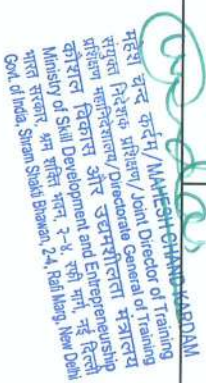 महेश चन्द कर्दम/MAHESH CHAND KARDAM
संयुक्त निदेशक प्रशिक्षण/ Joint Director of Training
प्रशिक्षण महानिदेशालय/Directorate General of Training
कौशल विकास और उद्यमशीलता मंत्रालय
Ministry of Skill Development and Entrepreneurship
भारत सरकार, श्रम शक्ति भवन, २-४, रफी मार्ग, नई दिल्ली
Govt. of India, Shram Shakti Bhawan, 2-4, Rafi Marg, New Delhi